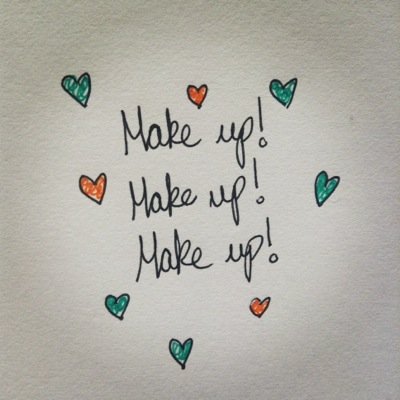 Make up!
Make up!
Make up!